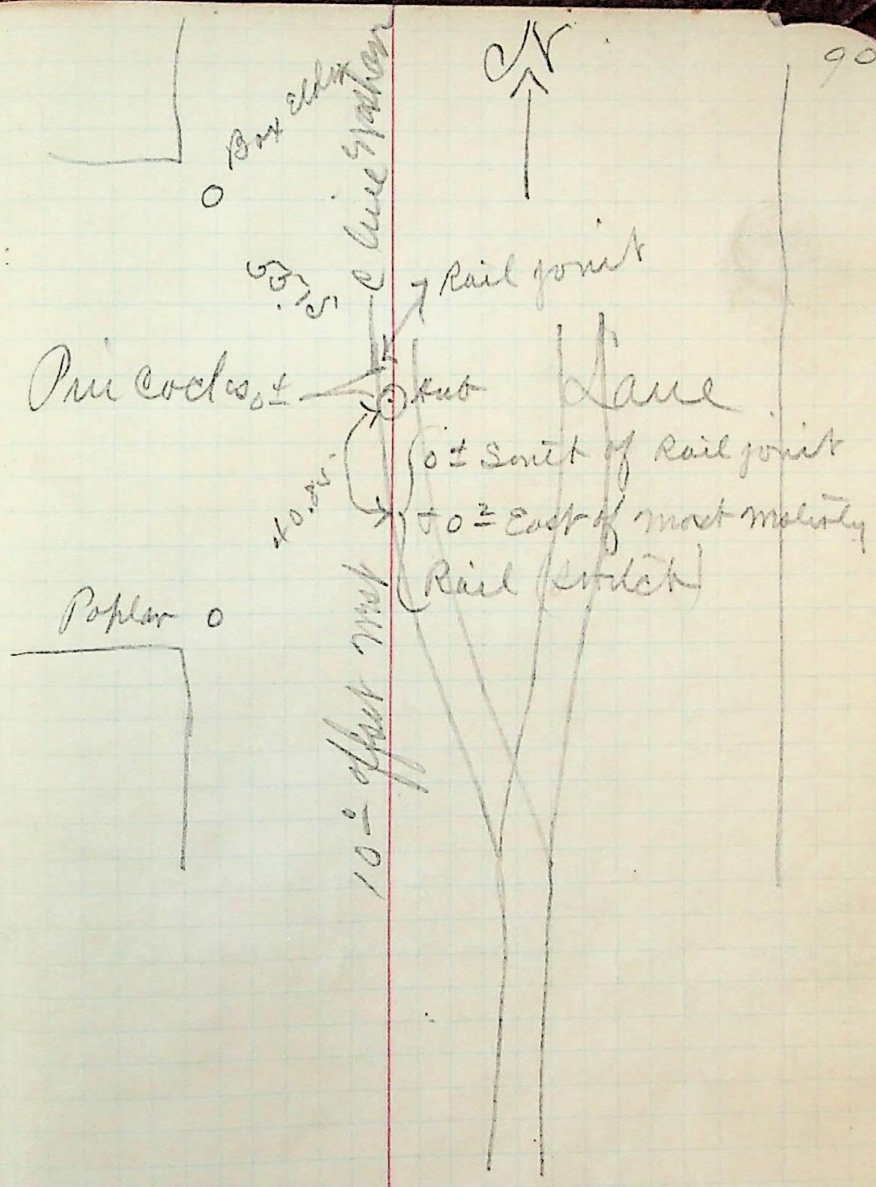 90
N
Box Elder
C line
53.15
Rail joint
Pincocks
Hub
Lane
0⁴
0± South of Rail joint
40.85
+ 0² East of most westerly
Rail (Switch)
Poplar
10⁰ offset west